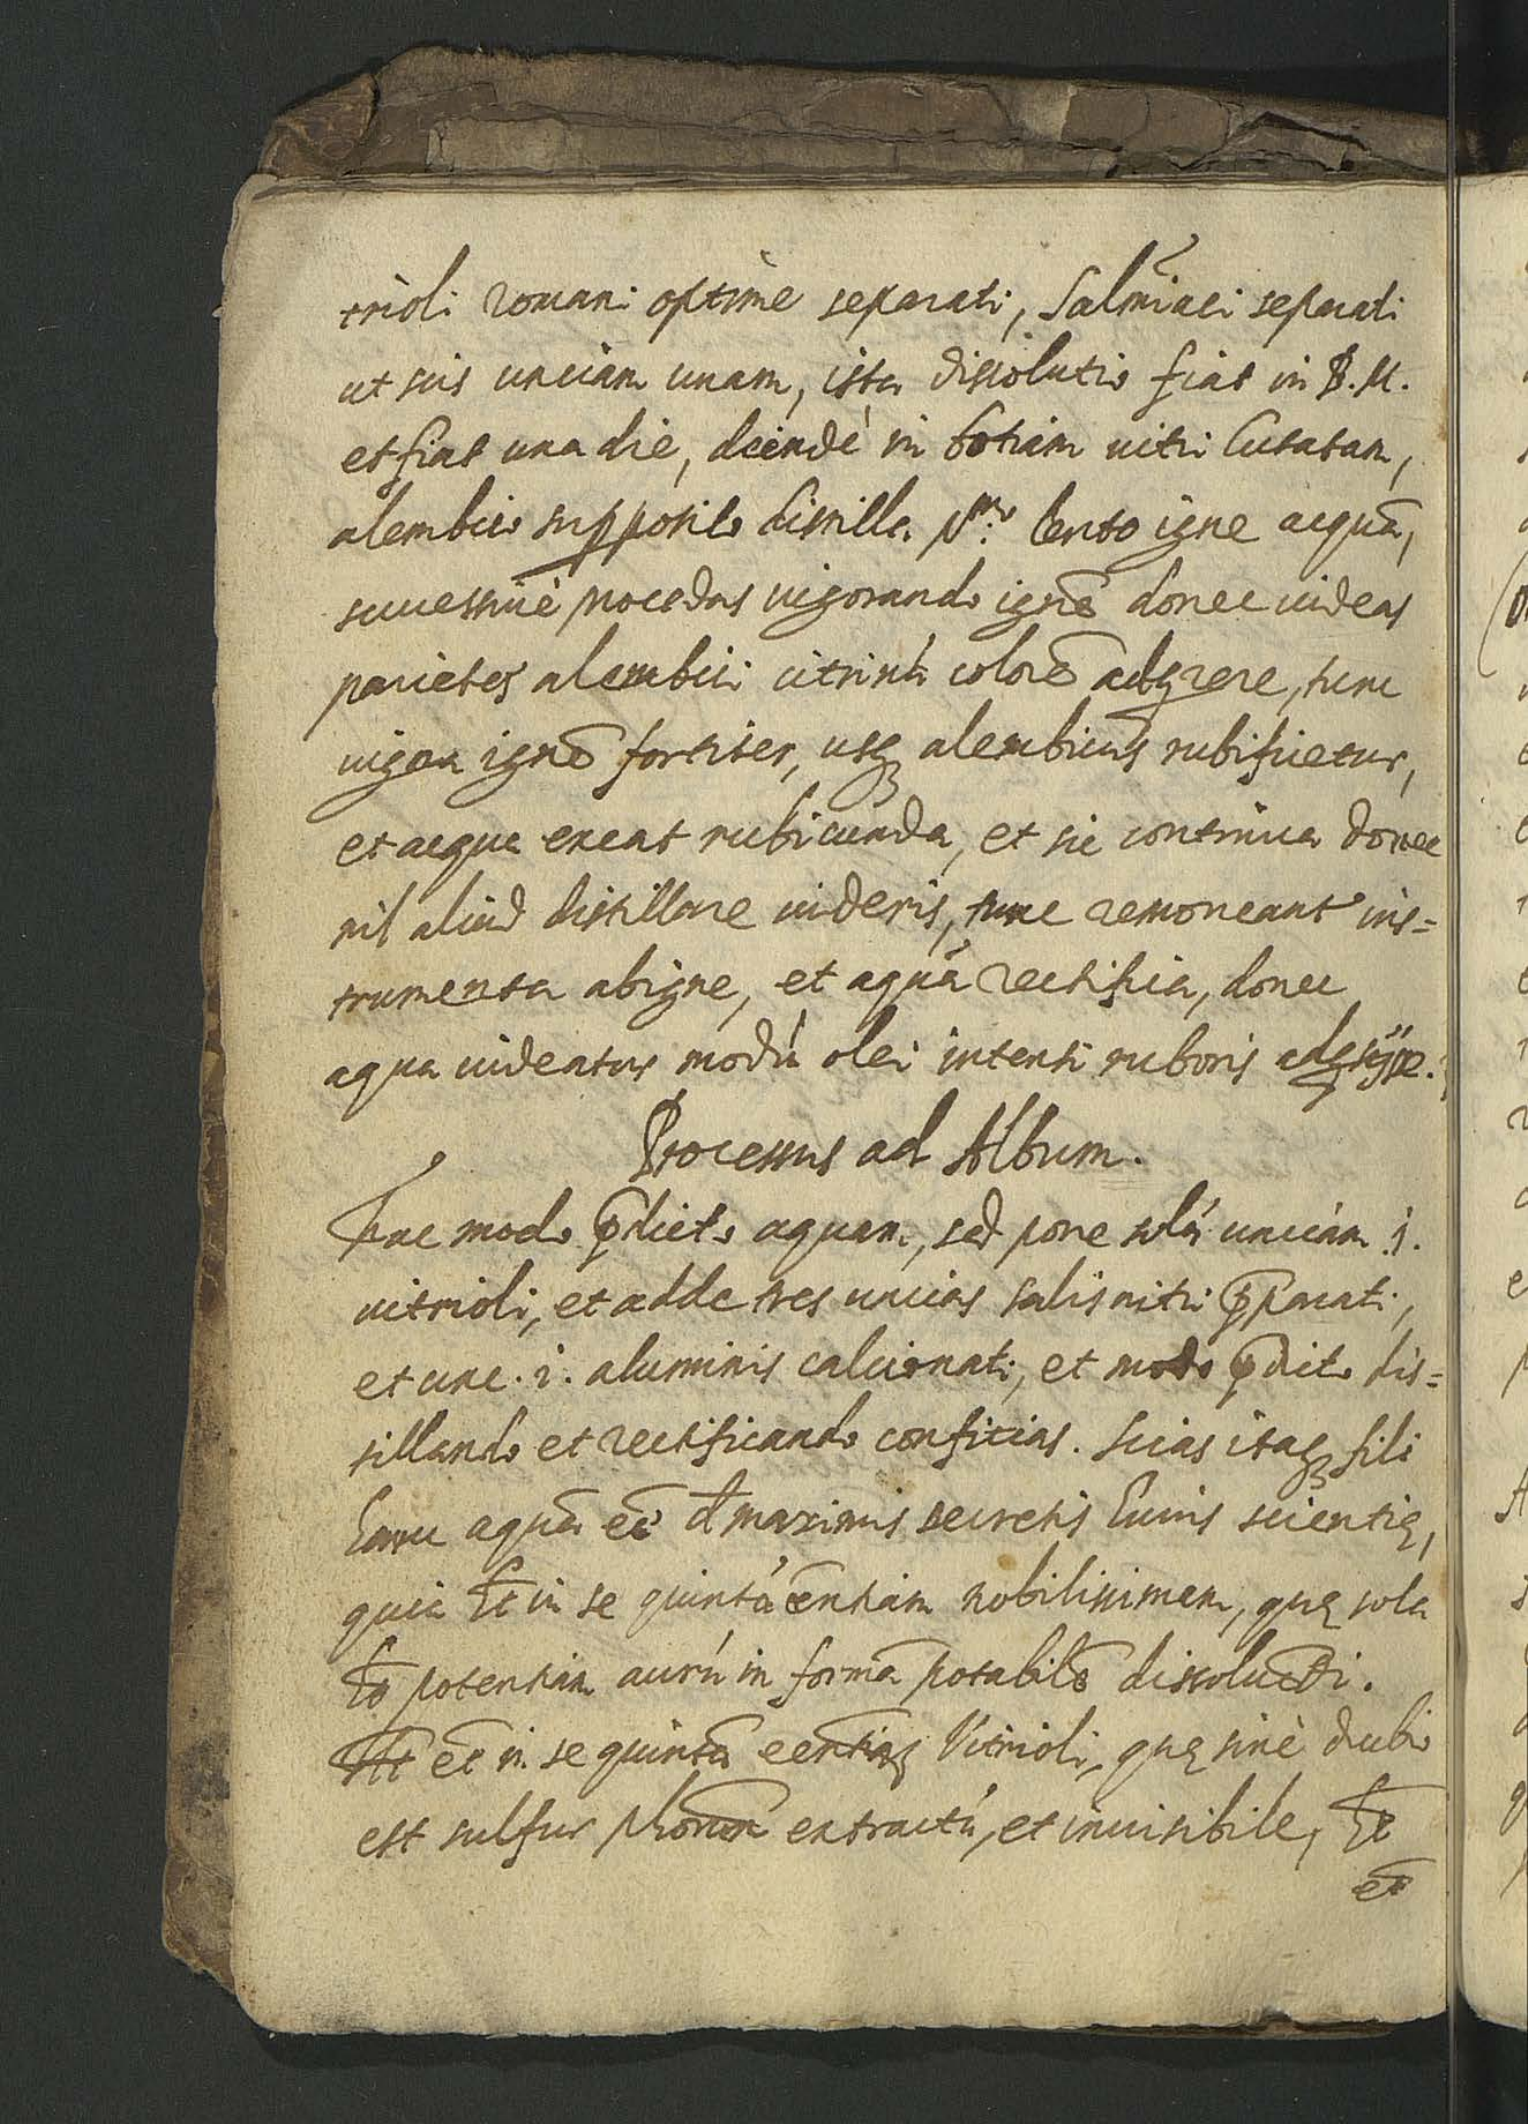 trioli romani optime separati, Salmiaci separati
ut scis unciam unam, ista dissolutio fiat in B. M.
et fiat una die, deindè in botiam uitri lutatam,
alembico supposito distilla pmo: lento igne acquã,
successiuè procedas uigorando ignẽ donec uideas
parietes alembici citrinú colorẽ adqrere, tunc
uigora ignẽ fortiter, usq alembicus rubificetur,
et acqua exeat rubicunda, et sic continua donec
nil aliud distillare uideris, tunc remoueant ins=
trumenta ab igne, et aquã rectifica, donec
aqua uideatur modú olei intensi ruboris
Processus ad Album.
Fac modo p̃dicto aquam, sed pone solú unciam i.
uitrioli, et adde tres uncias salis nitri p̃parati,
et unc. i. aluminis calcionati, et modo p̃dicto dis=
tillando et rectificando conficias. Scias itaq fili
hanc aquã eẽ d maximis secretis huius scientię,
quia ht in se quintá eentiam nobilissimam, quę sola
ht potentiam aurú in formã potabilẽ dissoluendi.
Ht et in se quintã Vitrioli, quę sinè dubio
est sulfur phorum extractú, et inuisibile, ht
et